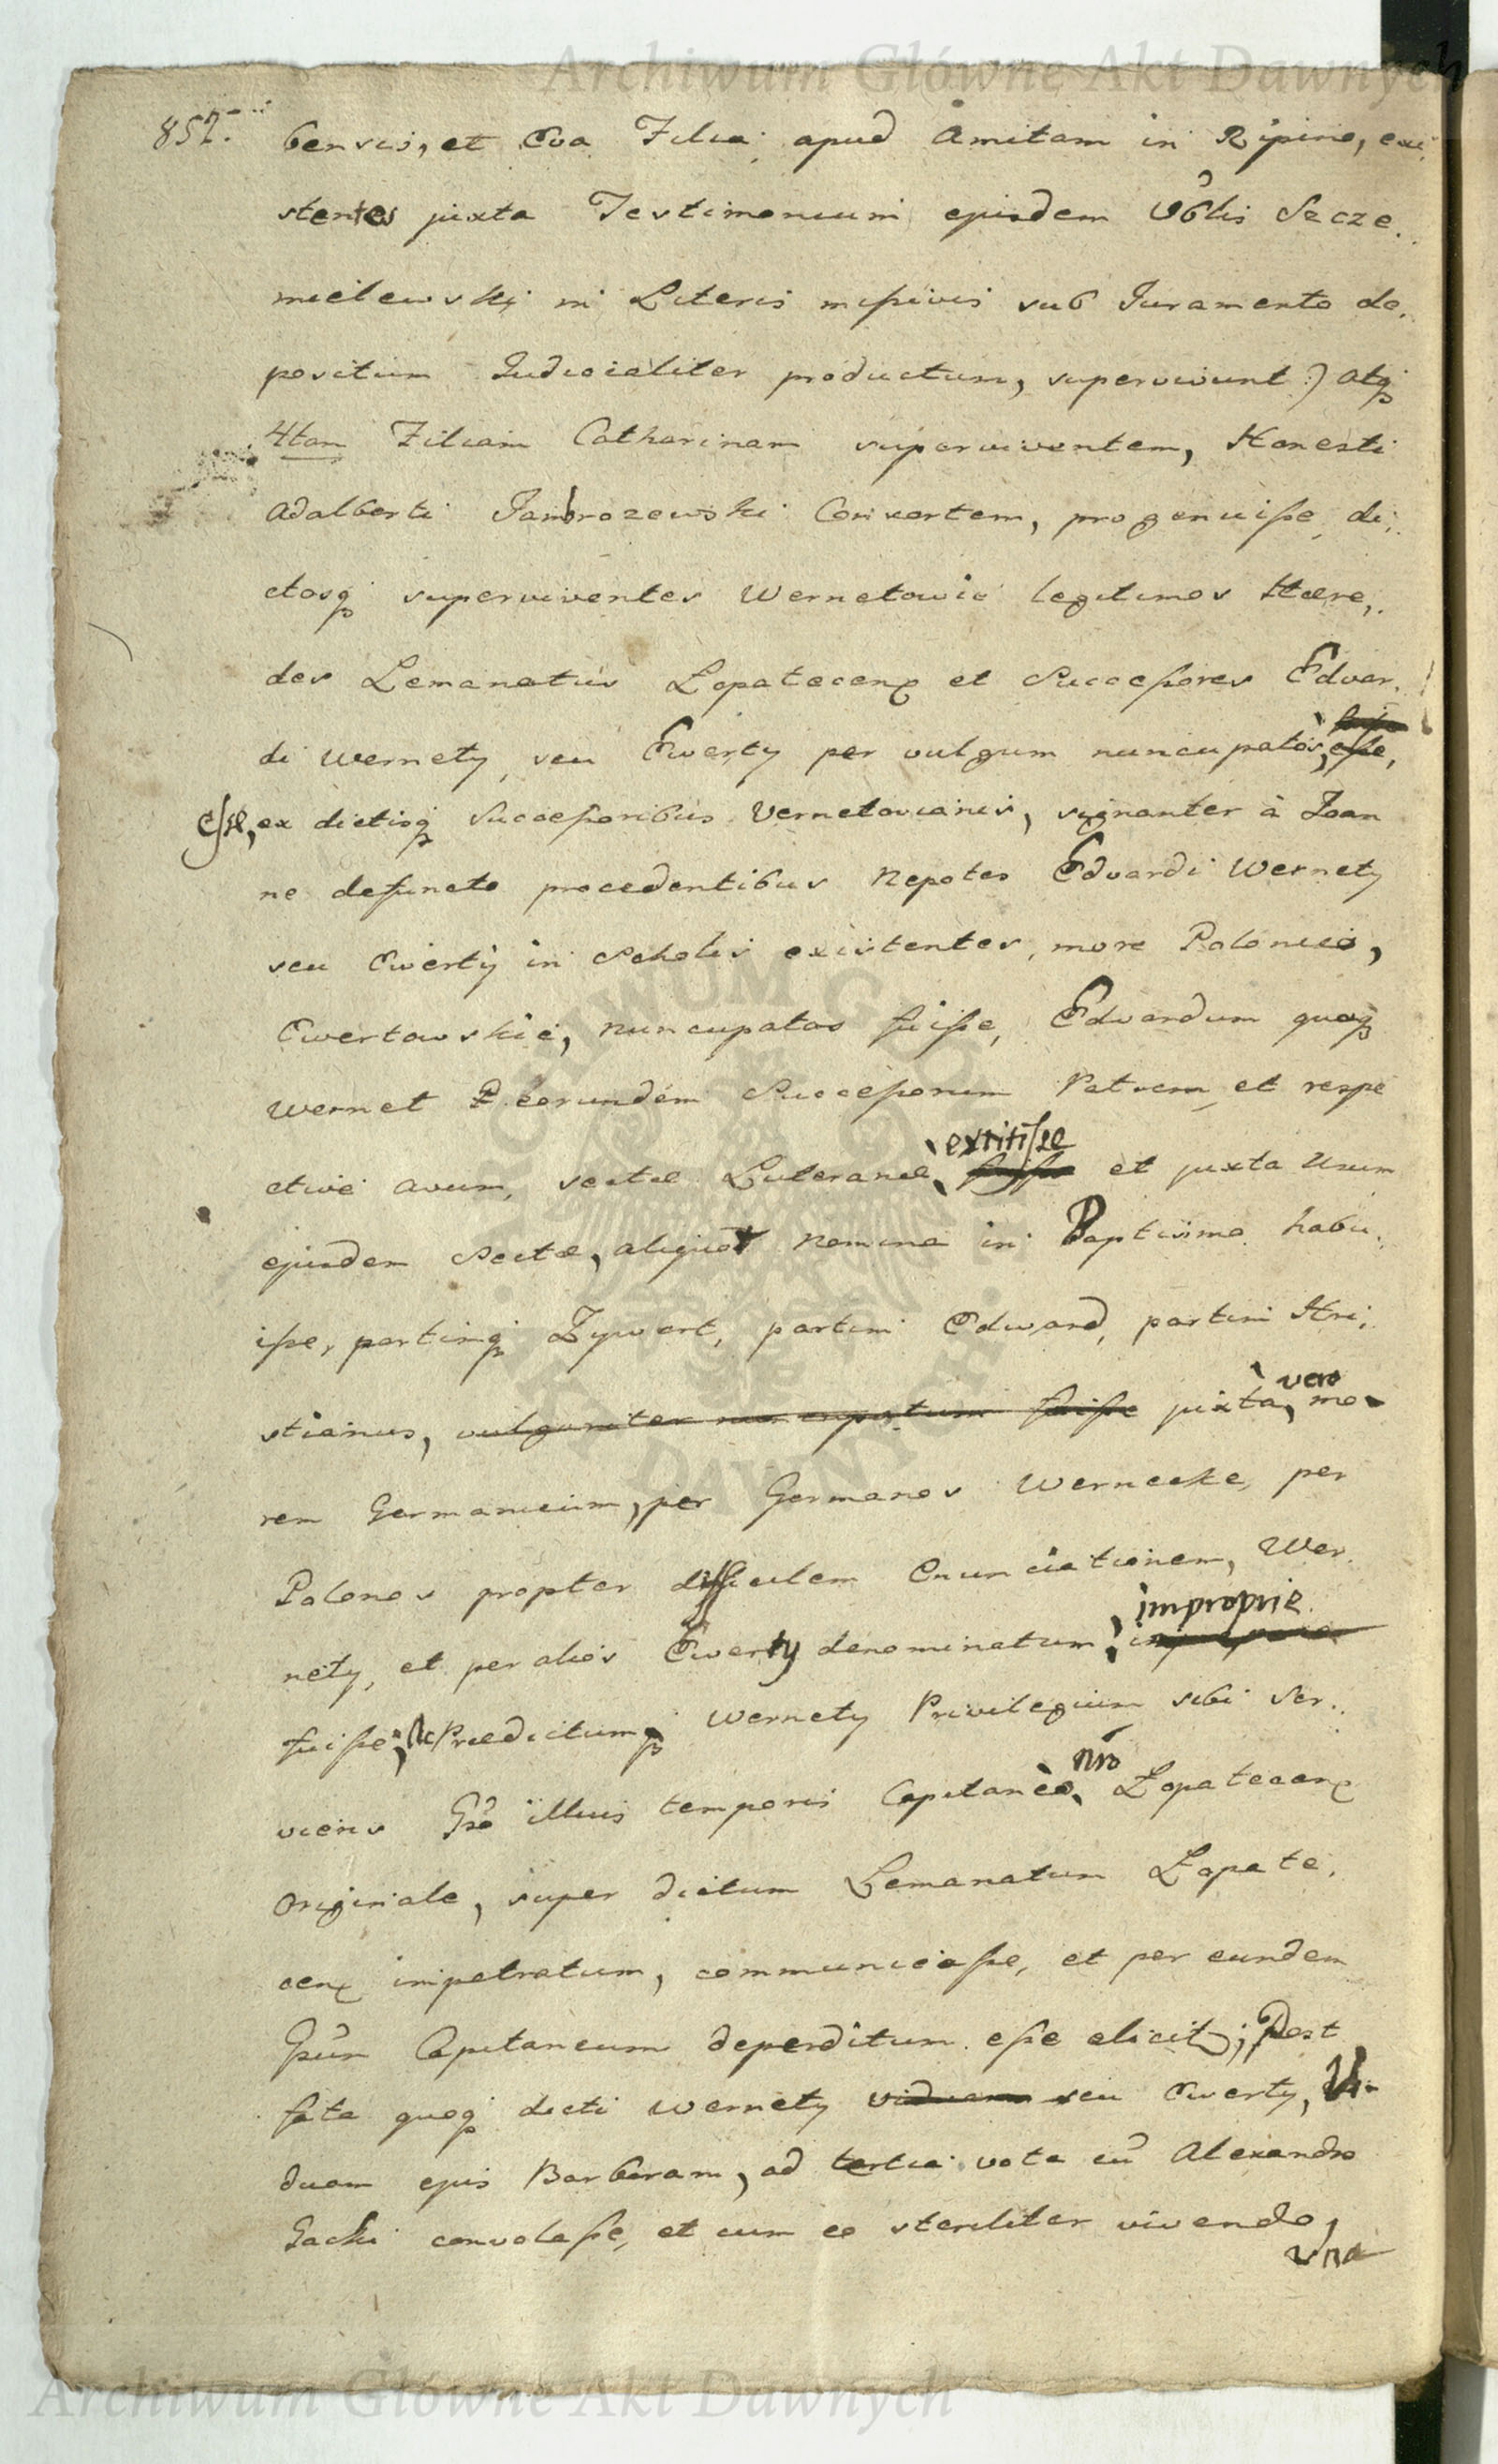 Archiwum Główne Akt Dawnych
857.
bensis, et Eva Filia apud Amitam in Ripino, exi,
stentes juxta Testimonium ejusdem Gblis Szcze.
mielewski in Literis mißivis sub Juramento de,
positum Judicialiter productum, supervivunt :) atq
4tam Filiam Catharinam superviventem, Honesti
Adalberti Jambrozewski Consortem, progenuiße, di,
ctosq superviventes Wernetowie legitimos Hære,
des Lemanatus Łopatecens et Succeßores Edvar,
di Wernety, seu Ewerty per vulgum nuncupatos, eße,
eße, ex dictisq Succeßoribus Vernetovianis, signanter à Joan
ne defuncto procedentibus Nepotes Edvardi Wernety
seu Ewerty in Scholis existentes, more Polonico,
Ewertowskie, nuncupatos fuiße, Edvardum quoq
Wernet eorundem Succeßorum Patrem, et respe
ctive avum, sectæ Luteranæ, extitiße fuiße et juxta Usum
ejusdem Sectæ, aliquot Nomina in Baptismo habu,
iße, partimq Zywert, partim Edward, partim Hri,
stianus, vulgariter nuncupatum fuiße juxta, vero mo-
rem Germanicum, per Germanos Wernecke, per
Polonos propter difficilem Enunciationem, Wer,
nety, et per alios Ewerty denominatum, improprie
fuiße; Prædictumq Wernety Privilegium sibi Ser,
viens Gso illius temporis Capitaneo, nro Łopatecens
Originale, super dictum Lemanatum Łopate,
cens impetratum, communicaße, et per eundem
Gsum Capitaneum deperditum eße elicit; Post
fata quoq dicti Wernety viduam seu Ewerty, Vi-
duam ejus Barbaram, ad tertia vota cu Alexandro
Jacki convolaße, et cum eo steriliter vivendo,
una
Archiwum Główne Akt Dawnych